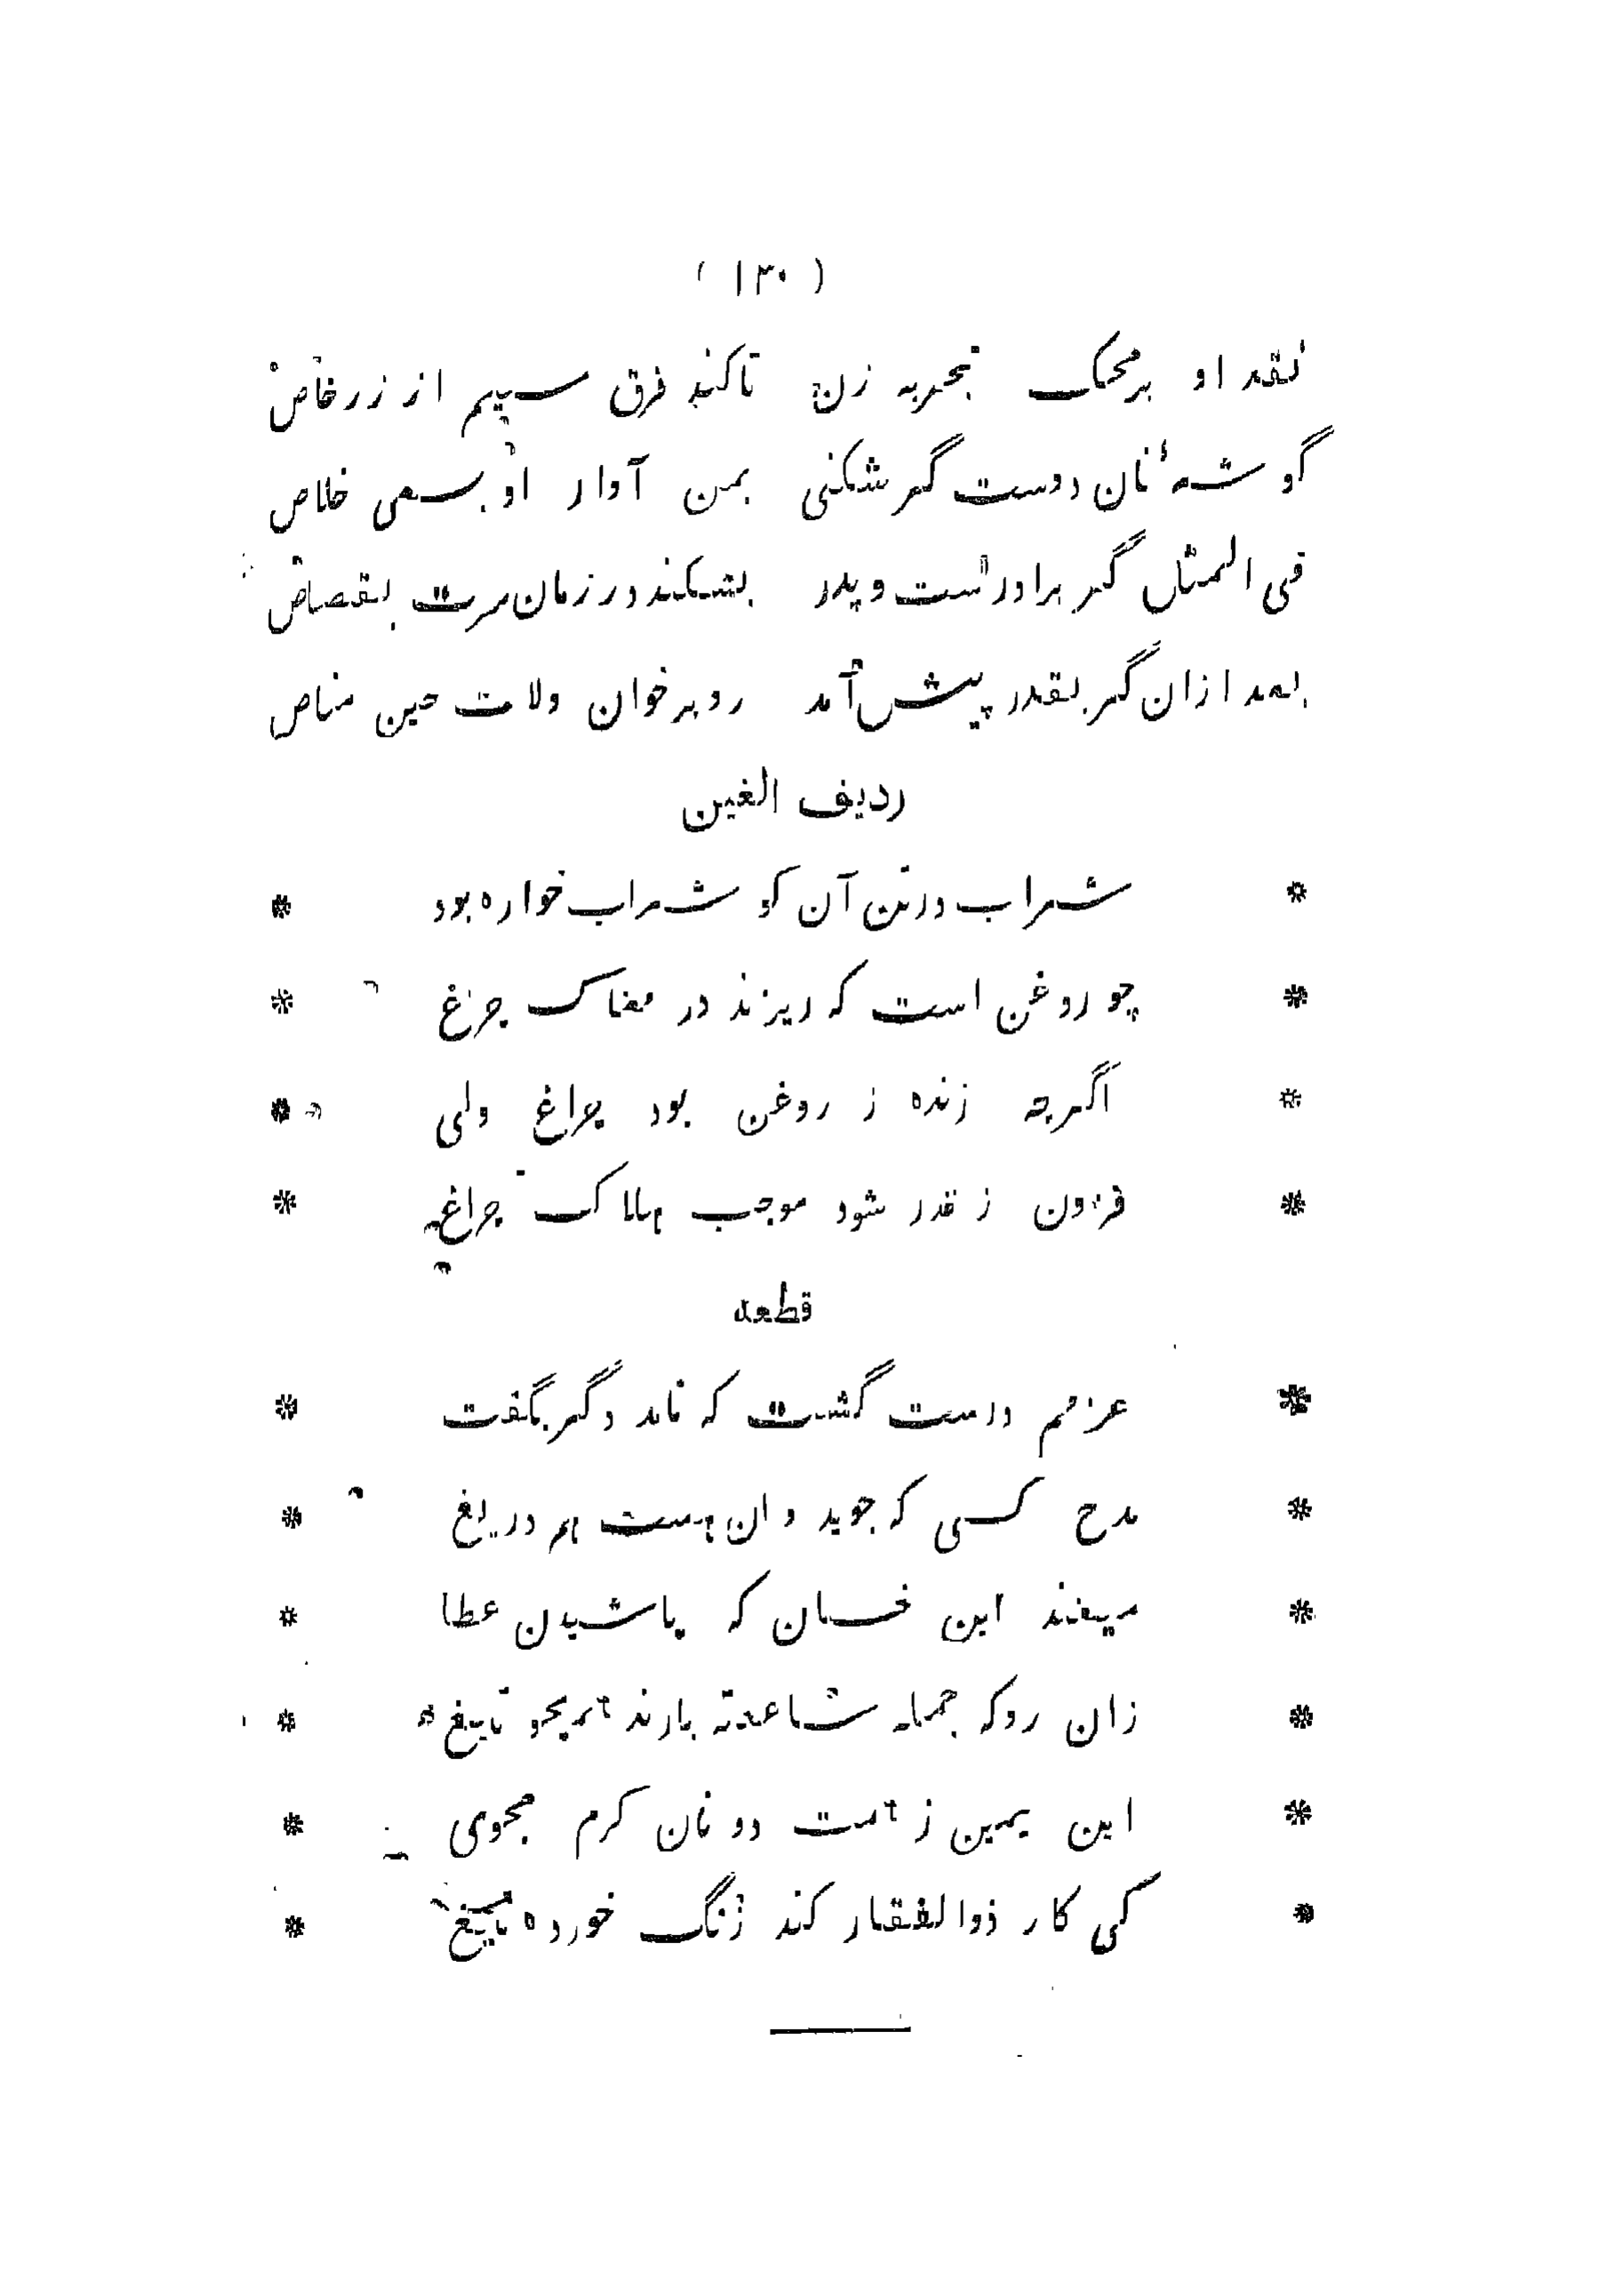 ( ۱۳۰ )
نقد او بر محک تجربه زن تا کند فرق سیم از زر خاص
گوشهٔ نان دوست گر شکنی بمن آوار او بسعی خلاص
فی المثل گر برادرست و پدر بشکند در زمان سرت بقصاص
بعد ازان گر بقدر پیش آمد رو بر خوان ولات حین مناص
ردیف الغین
* شراب در تن آن کو شراب خواره بود *
* چو روغن است که ریزند در مغاک چرغ *
* اگرچه زنده ز روغن بود چراغ ولی *
* فزون ز قدر شود موجب هلاک چراغ *
قطعه
* عزمم درست گشت که ناید دگر بگفت *
* مدح کسی که جوید و ان هست هم دریغ *
* میغند این خسان که پاشیدن عطا *
* زان رو که جمله شاعقه بارند همچو تیغ *
* ابن یمین ز همت دونان کرم مجوی *
* کی کار ذوالفقار کند زنگ خورده تیغ *